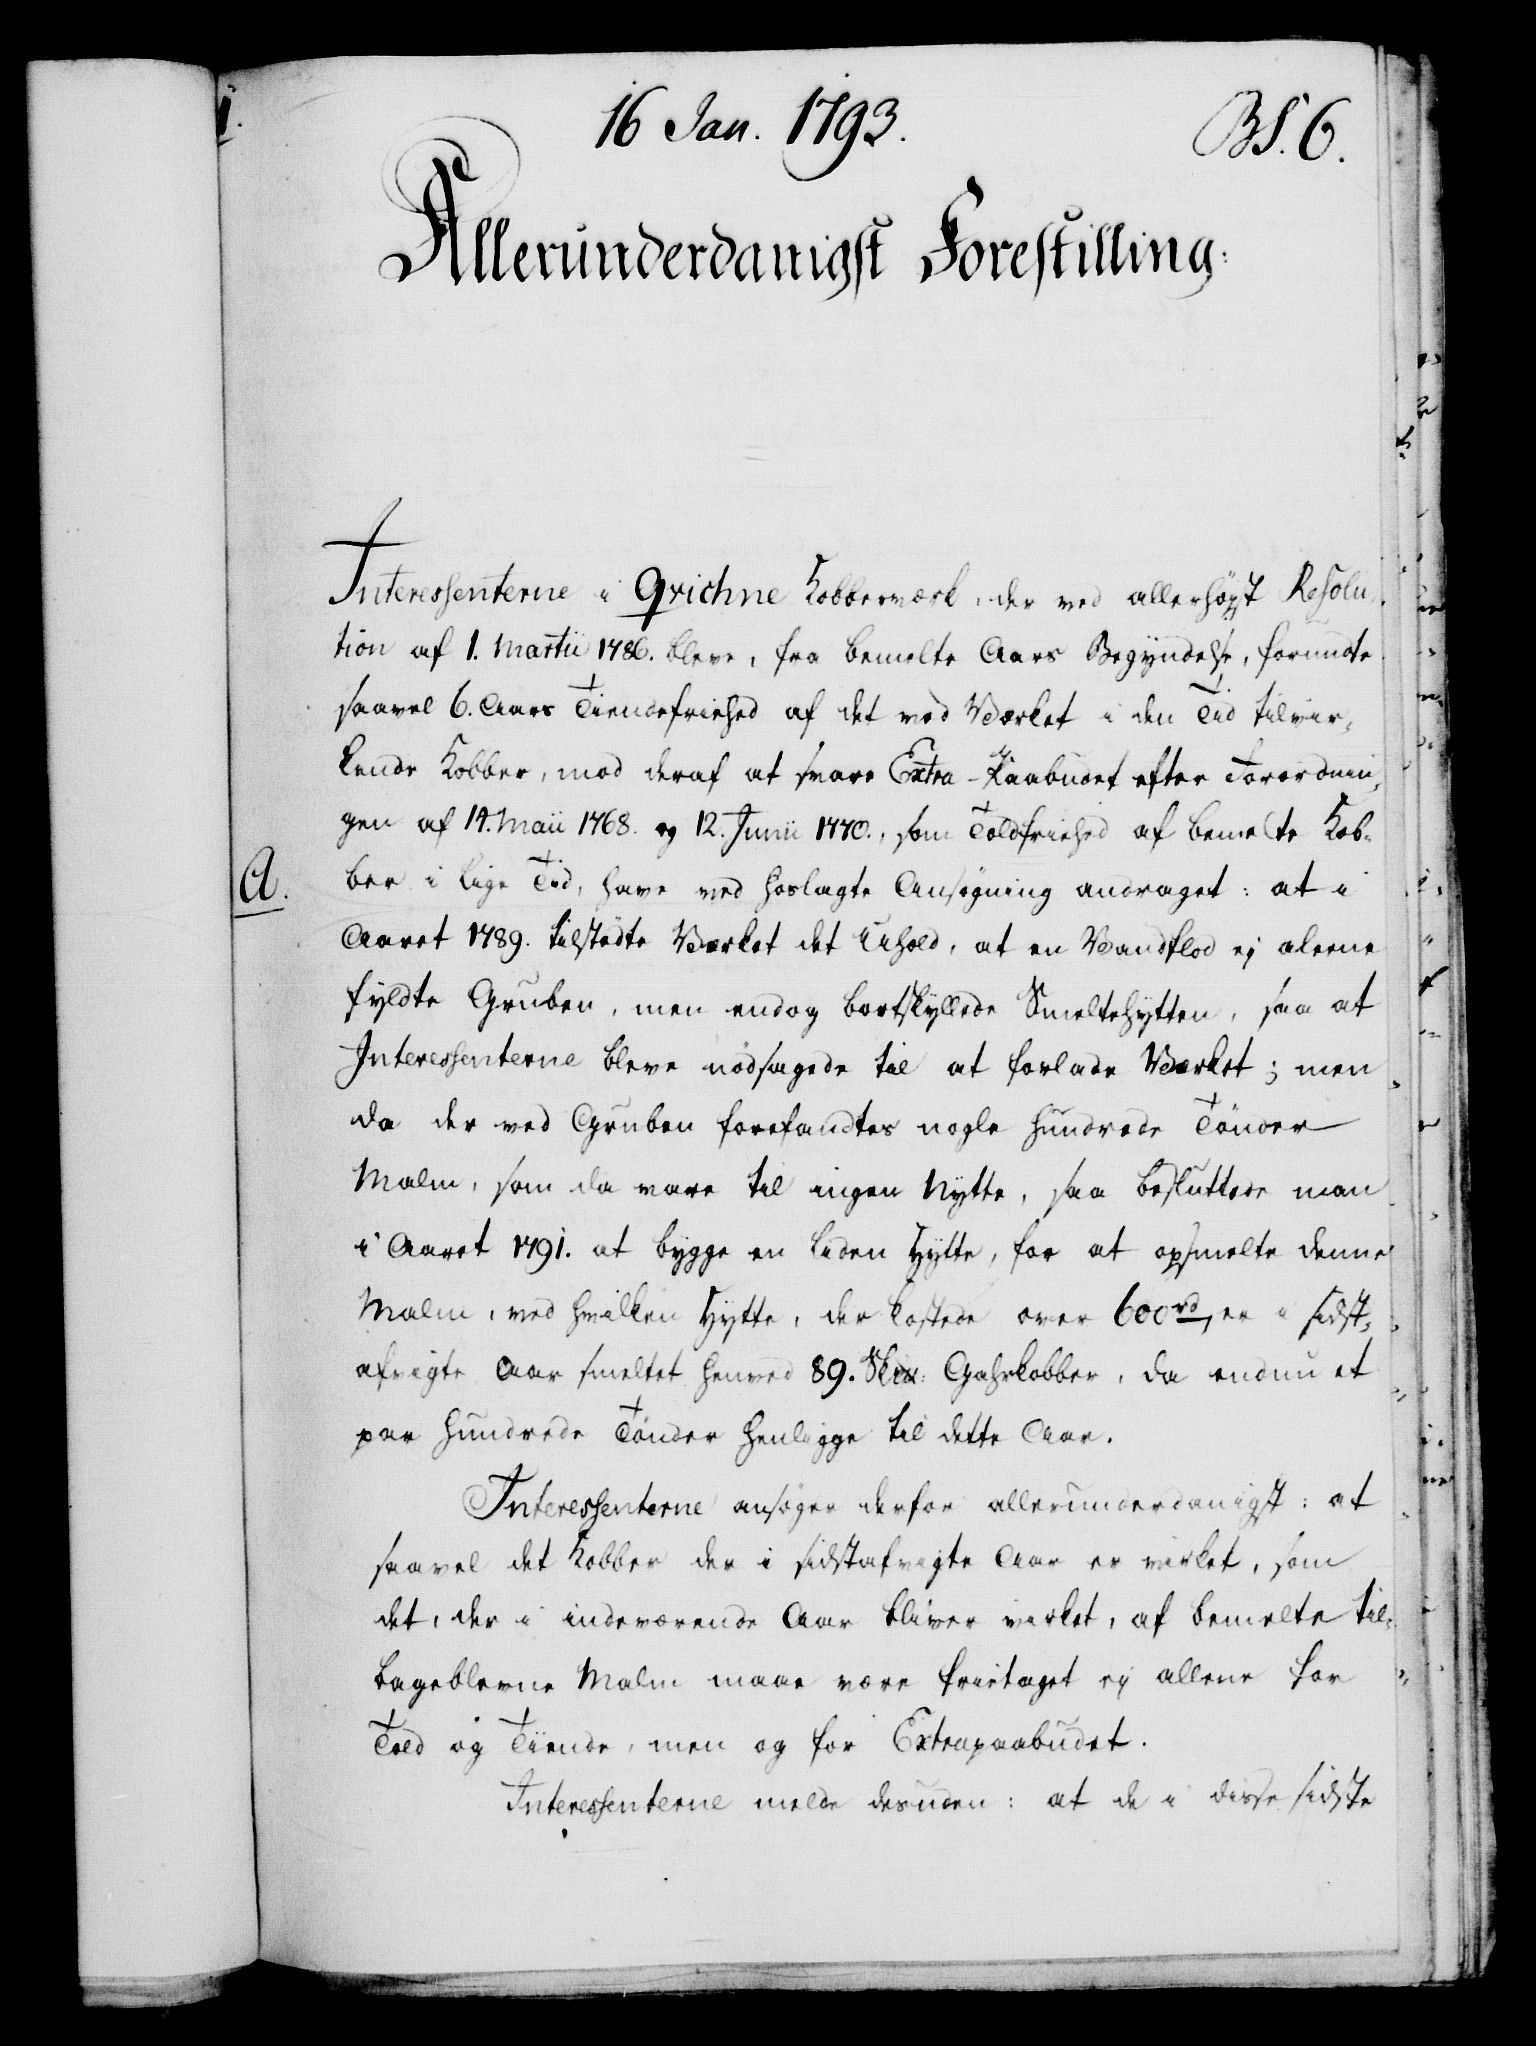 16 Jan. 1793.
BS. 6.
Allerunderdanigst Forestilling:
Interessenterne i Qvichne Kobberværk, der ved allerhöyst Resolu-
tion af 1. Martii 1786. bleve, fra bemelte Aars Begyndelse, forundte
saavel 6. Aars Tiendefriehed af det ved Værket i den Tid tilvir-
kende Kobber, mod deraf at svare Extra-Paabudet efter Forordnin-
gen af 14. Maii 1768. og 12. Junii 1770., som Toldfriehed af bemelte Kob-
A.
ber i lige Tid, have ved hoslagte Ansögning andraget: at i
Aaret 1789. tilstödte Værket det Uhold, at en Vandflod ej aleene
fyldte Gruben, men endog bortskyllede Smeltehytten, saa at
Interessenterne bleve nödsagede til at forlade Værket; men
da der ved Gruben forefandtes nogle hundrede Tönder
Malm, som da vare til ingen Nytte, saa besluttede man
i Aaret 1791. at bygge en liden Hytte, for at opsmelte denne
Malm, ved hvilken Hytte, der kostede over 600 rd, er i sidst-
afvigte Aar smeltet henved 89. Sk℔: Gahrkobber, da endnu et
par hundrede Tönder henligge til dette Aar.
Interessenterne ansöger derfor allerunderdanigst: at
saavel det Kobber der i sidstafvigte Aar er virket, som
det, der i indeværende Aar bliver virket, af bemelte til-
bageblevne Malm maae være frietaget ej allene for
Told og Tiende, men og for Extrapaabudet.
Interessenterne melde desuden: at de i disse sidste